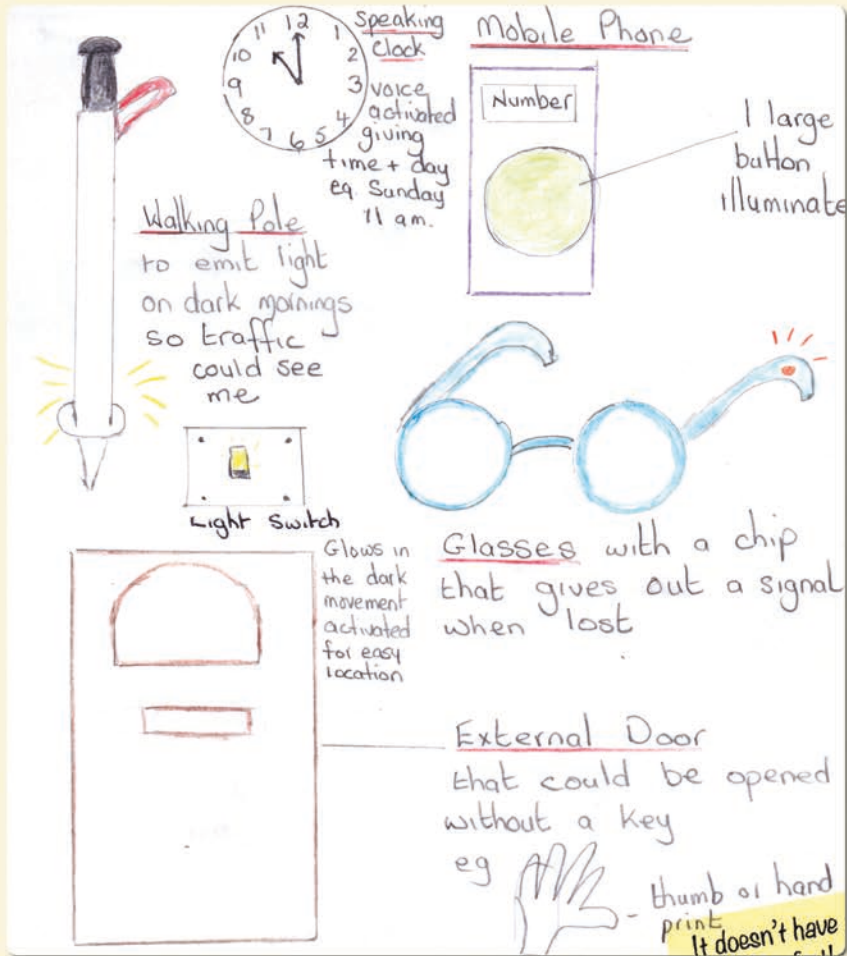 12
11
1
10
2
9
3
8
4
7
6
5
Speaking
Clock
voice
activated
giving
time + day
eg. Sunday
11 am.
Mobile Phone
Number
1 large
button
illuminate
Walking Pole
to emit light
on dark mornings
so traffic
could see
me
Light Switch
Glows in
the dark
movement
activated
for easy
location
Glasses with a chip
that gives out a signal
when lost
External Door
that could be opened
without a key
eg
- thumb or hand
print
It doesn't have